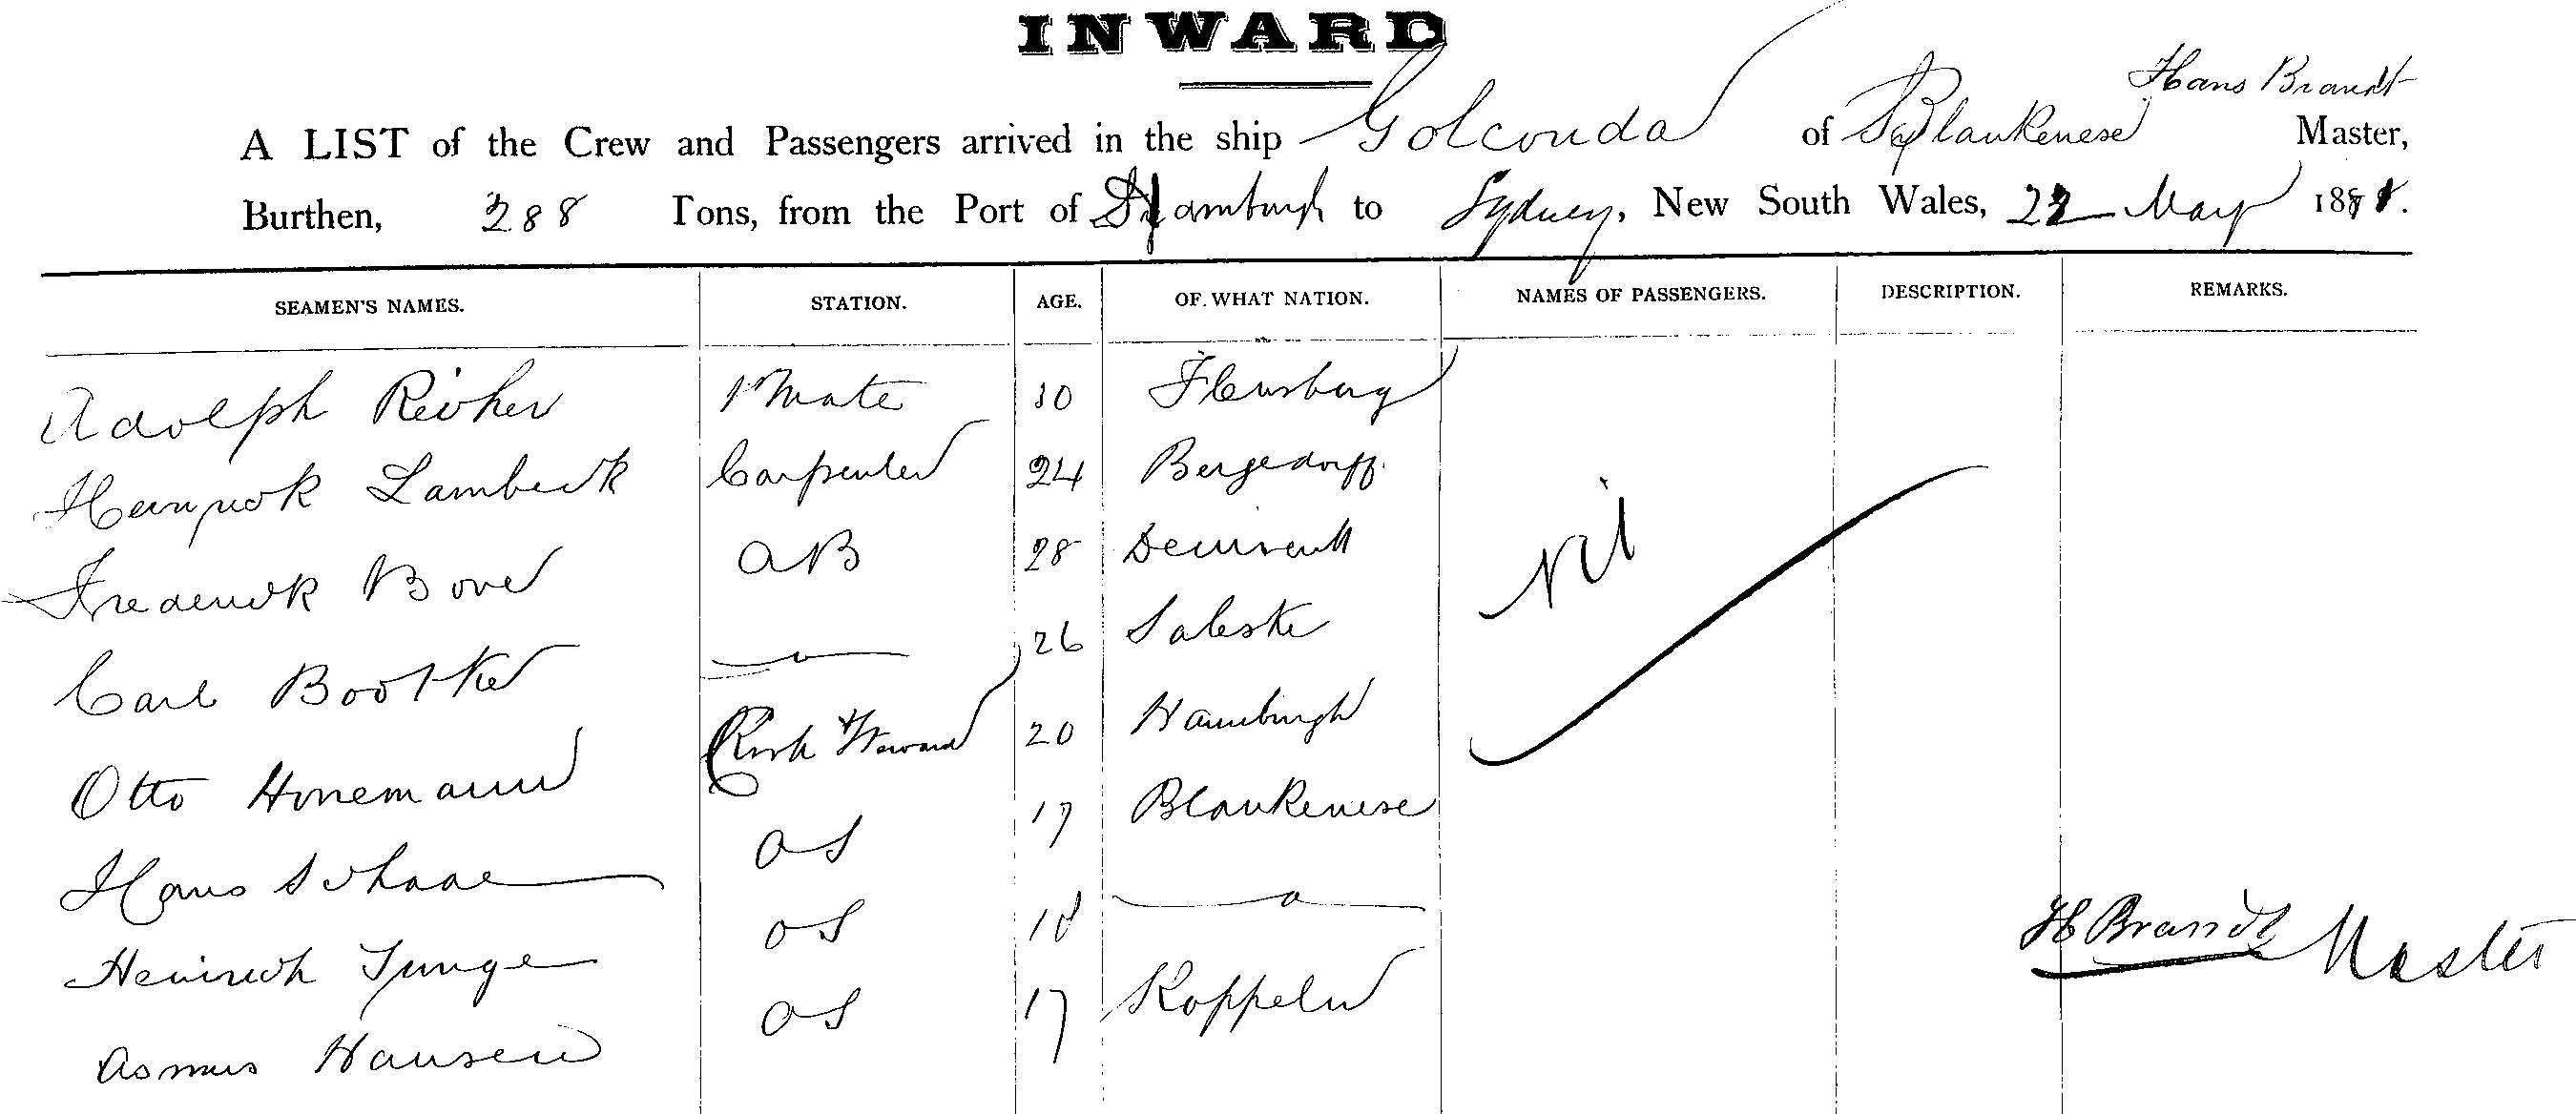 INWARD
Hans Brandt
A LIST of the Crew and Passengers arrived in the ship Golconda of Blankenese Master,
Burthen, 288 Tons, from the Port of Hamburgh to Sydney, New South Wales, 22 May 188
SEAMEN'S NAMES. STATION. AGE. OF WHAT NATION. NAMES OF PASSENGERS. DESCRIPTION. REMARKS.
Adolph Ricker 1 Mate 30 Flensburg
Heinrick Lambeck Carpenter 24 Bergedorff
Frederick Bove AB 28 Nil
Carl Boottker 26 Saleske
Otto Honemann Cook & Steward 20 Hamburgh
Hans Schaae OS 17 Blankenese
Heinrich Junge OS 18 H Brandt Master
Asmus Hansen OS 17 Koppeln